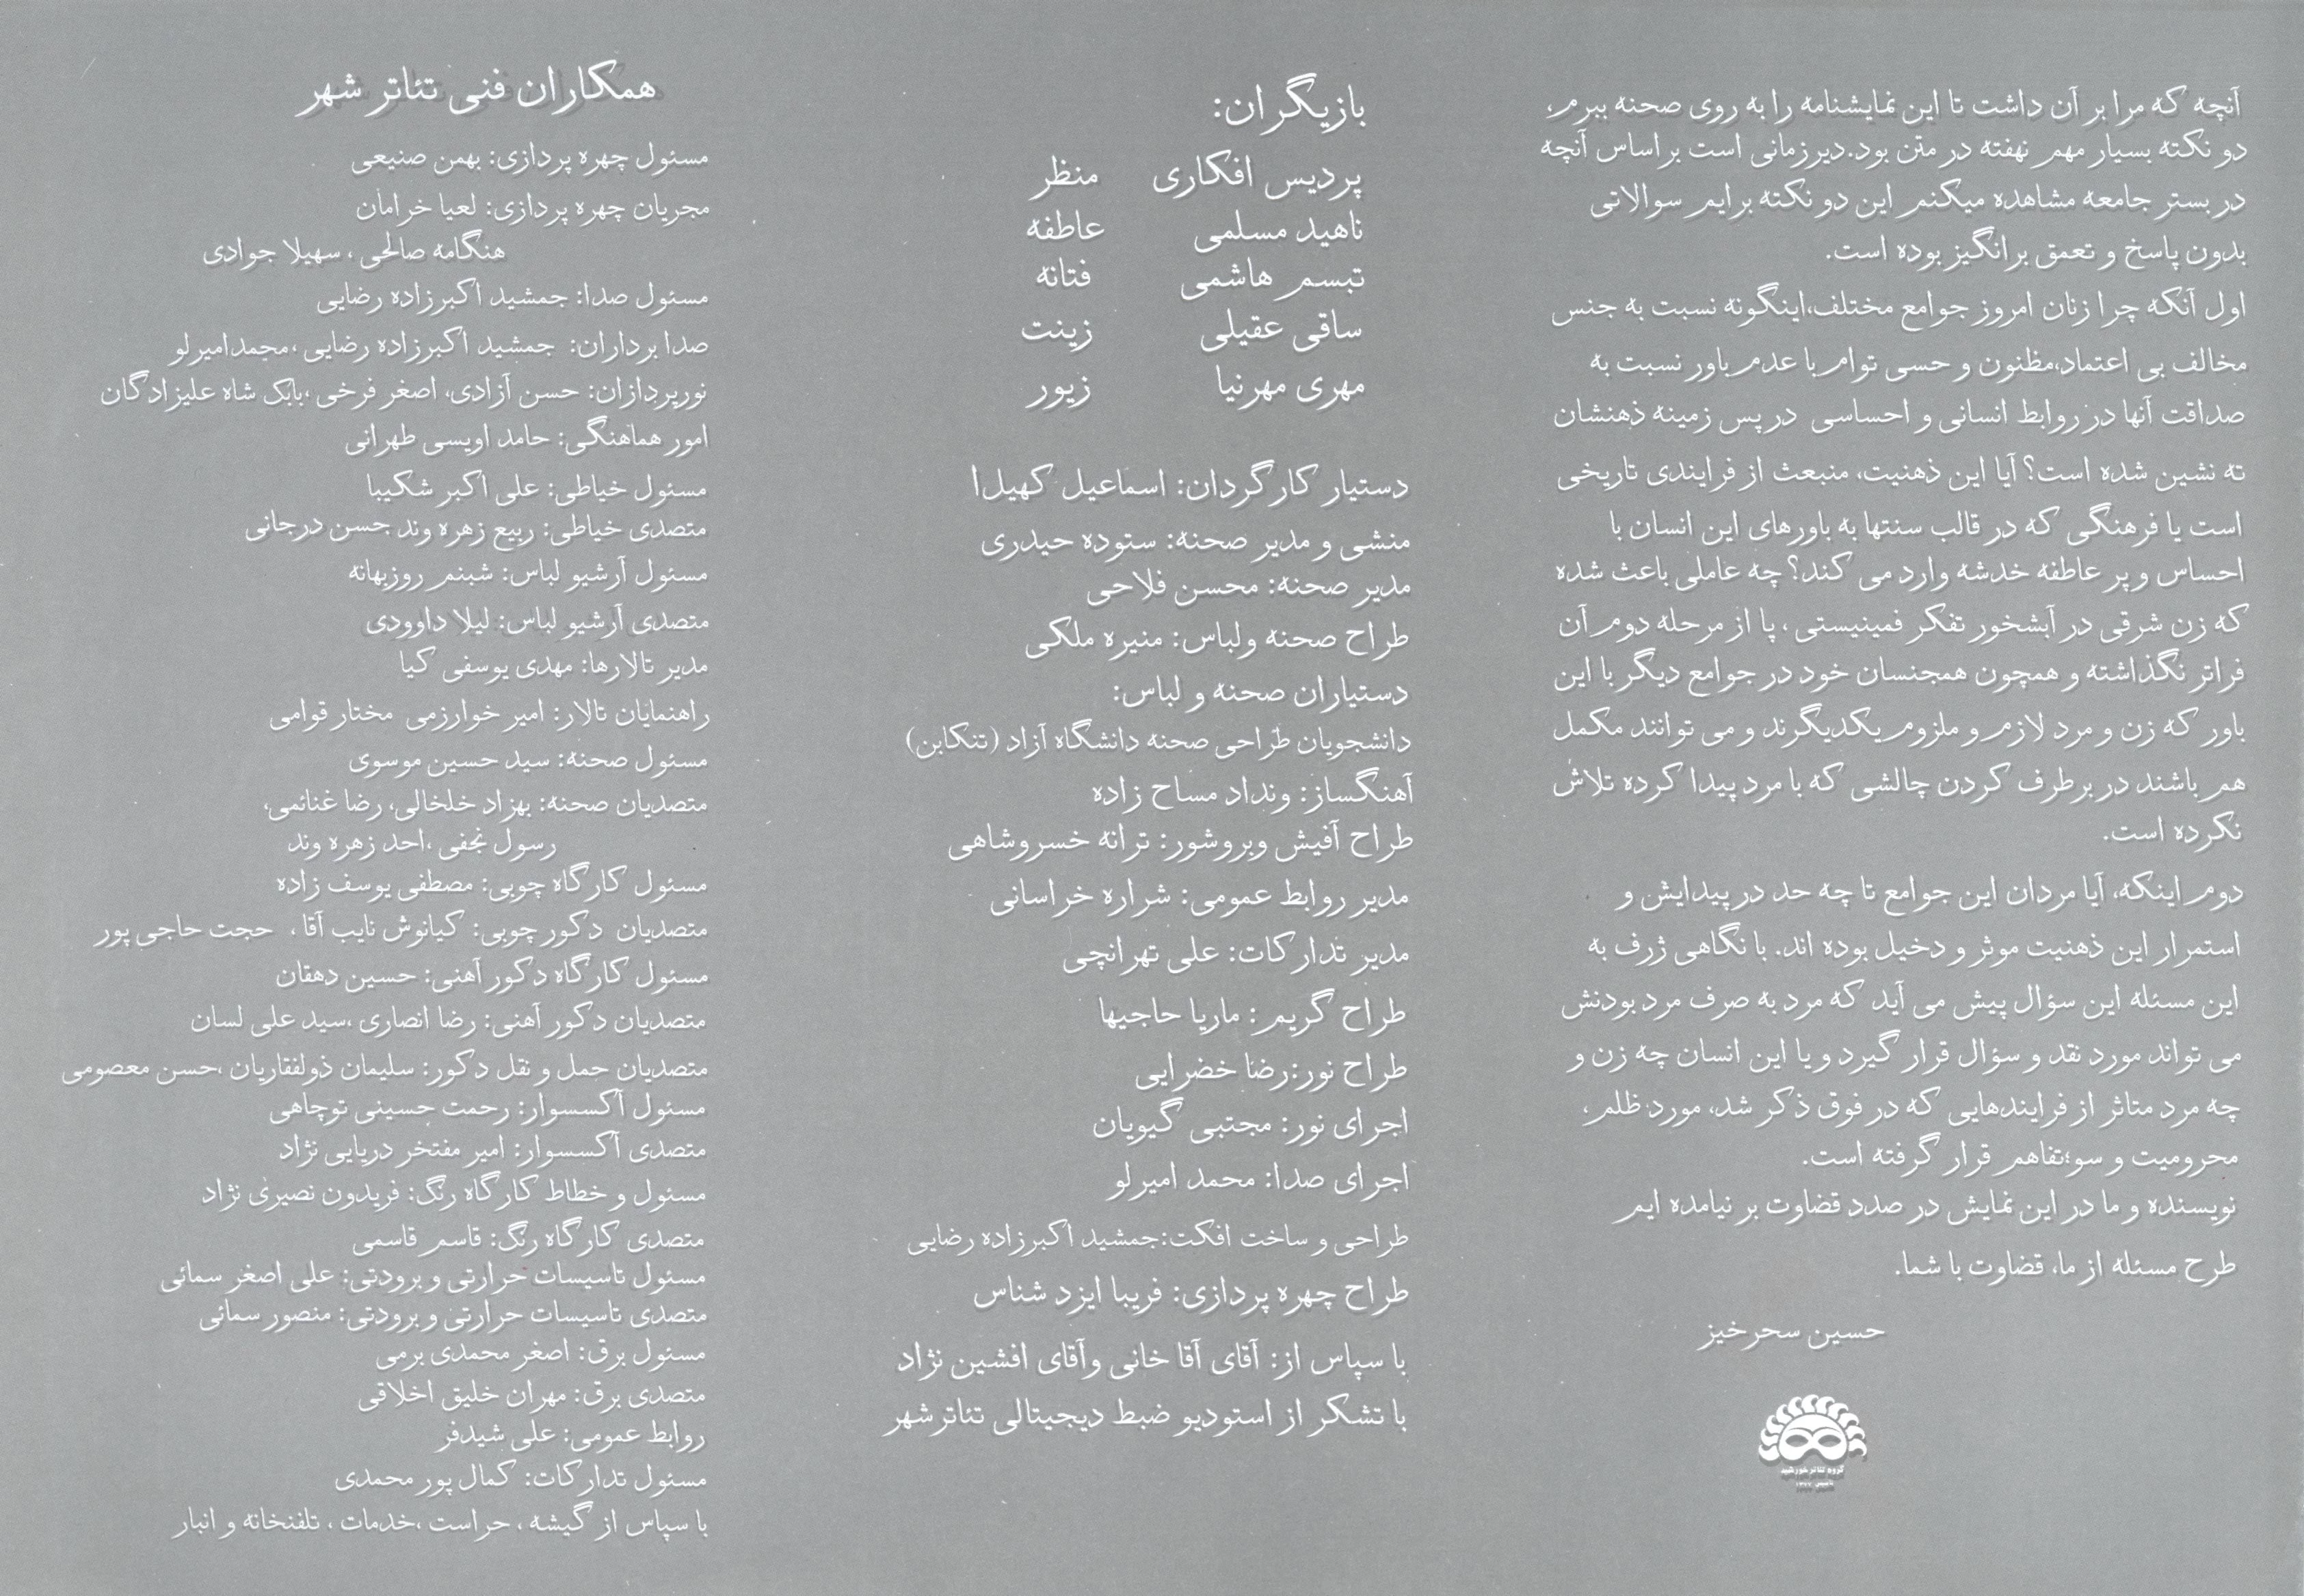 آنچه که مرا بر آن داشت تا این نمایشنامه را به روی صحنه ببرم،
دو نکته بسیار مهم نهفته در متن بود.دیرزمانی است براساس آنچه
در بستر جامعه مشاهده میکنم این دو نکته برایم سوالاتی
بدون پاسخ و تعمق برانگیز بوده است.
اول آنکه چرا زنان امروز جوامع مختلف،اینگونه نسبت به جنس
مخالف بی اعتماد،مظنون و حسی توام با عدم باور نسبت به
صداقت آنها در روابط انسانی و احساسی در پس زمینه ذهنشان
ته نشین شده است؟ آیا این ذهنیت، منبعث از فرایندی تاریخی
است یا فرهنگی که در قالب سنتها به باورهای این انسان با
احساس و پر عاطفه خدشه وارد می کند؟ چه عاملی باعث شده
که زن شرقی در آبشخور تفکر فمینیستی ، پا از مرحله دوم آن
فراتر نگذاشته و همچون همجنسان خود در جوامع دیگر با این
باور که زن و مرد لازم و ملزوم یکدیگرند و می توانند مکمل
هم باشند در برطرف کردن چالشی که با مرد پیدا کرده تلاش
نکرده است.
دوم اینکه، آیا مردان این جوامع تا چه حد در پیدایش و
استمرار این ذهنیت موثر و دخیل بوده اند. با نگاهی ژرف به
این مسئله این سؤال پیش می آید که مرد به صرف مرد بودنش
می تواند مورد نقد و سؤال قرار گیرد و یا این انسان چه زن و
چه مرد متاثر از فرایندهایی که در فوق ذکر شد، مورد ظلم،
محرومیت و سوءتفاهم قرار گرفته است.
نویسنده و ما در این نمایش در صدد قضاوت بر نیامده ایم
طرح مسئله از ما، قضاوت با شما.
حسین سحرخیز
گروه تئاتر خورشید
بازیگران:
پردیس افکاری منظر
ناهید مسلمی عاطفه
تبسم هاشمی فتانه
ساقی عقیلی زینت
مهری مهرنیا زیور
دستیار کارگردان: اسماعیل کهیل!
منشی و مدیر صحنه: ستوده حیدری
مدیر صحنه: محسن فلاحی
طراح صحنه ولباس: منیره ملکی
دستیاران صحنه و لباس:
دانشجویان طراحی صحنه دانشگاه آزاد (تنکابن)
آهنگساز: ونداد مساح زاده
طراح آفیش وبروشور: ترانه خسروشاهی
مدیر روابط عمومی: شراره خراسانی
مدیر تدارکات: علی تهرانچی
طراح گریم: ماریا حاجیها
طراح نور:رضا خضرایی
اجرای نور: مجتبی گیویان
اجرای صدا: محمد امیرلو
طراحی و ساخت افکت:جمشید اکبرزاده رضایی
طراح چهره پردازی: فریبا ایزد شناس
با سپاس از: آقای آقا خانی وآقای افشین نژاد
با تشکر از استودیو ضبط دیجیتالی تئاترشهر
همکاران فنی تئاتر شهر
مسئول چهره پردازی: بهمن صنیعی
مجریان چهره پردازی: لعیا خرامان
هنگامه صالحی ، سهیلا جوادی
مسئول صدا: جمشید اکبرزاده رضایی
صدا برداران: جمشید اکبرزاده رضایی ،محمدامیرلو
نورپردازان: حسن آزادی، اصغر فرخی ،بابک شاه علیزادگان
امور هماهنگی: حامد اویسی طهرانی
مسئول خیاطی: علی اکبر شکیبا
متصدی خیاطی: ربیع زهره وند حسن درجانی
مسئول آرشیو لباس: شبنم روزبهانه
متصدی آرشیو لباس: لیلا داوودی
مدیر تالارها: مهدی یوسفی کیا
راهنمایان تالار: امیر خوارزمی مختار قوامی
مسئول صحنه: سید حسین موسوی
متصدیان صحنه: بهزاد خلخالی، رضا غنائمی،
رسول نجفی ،احد زهره وند
مسئول کارگاه چوبی: مصطفی یوسف زاده
متصدیان دکور چوبی: کیانوش نایب آقا ، حجت حاجی پور
مسئول کارگاه دکور آهنی: حسین دهقان
متصدیان دکور آهنی: رضا انصاری ،سید علی لسان
متصدیان حمل و نقل دکور: سلیمان ذولفقاریان ،حسن معصومی
مسئول آکسسوار: رحمت حسینی توچاهی
متصدی آکسسوار: امیر مفتخر دریایی نژاد
مسئول و خطاط کارگاه رنگ: فریدون نصیری نژاد
متصدی کارگاه رنگ: قاسم قاسمی
مسئول تاسیسات حرارتی و برودتی: علی اصغر سمائی
متصدی تاسیسات حرارتی و برودتی: منصور سمائی
مسئول برق: اصغر محمدی برمی
متصدی برق: مهران خلیق اخلاقی
روابط عمومی: علی شیدفر
مسئول تدارکات: کمال پور محمدی
با سپاس از گیشه ، حراست ،خدمات ، تلفنخانه و انبار